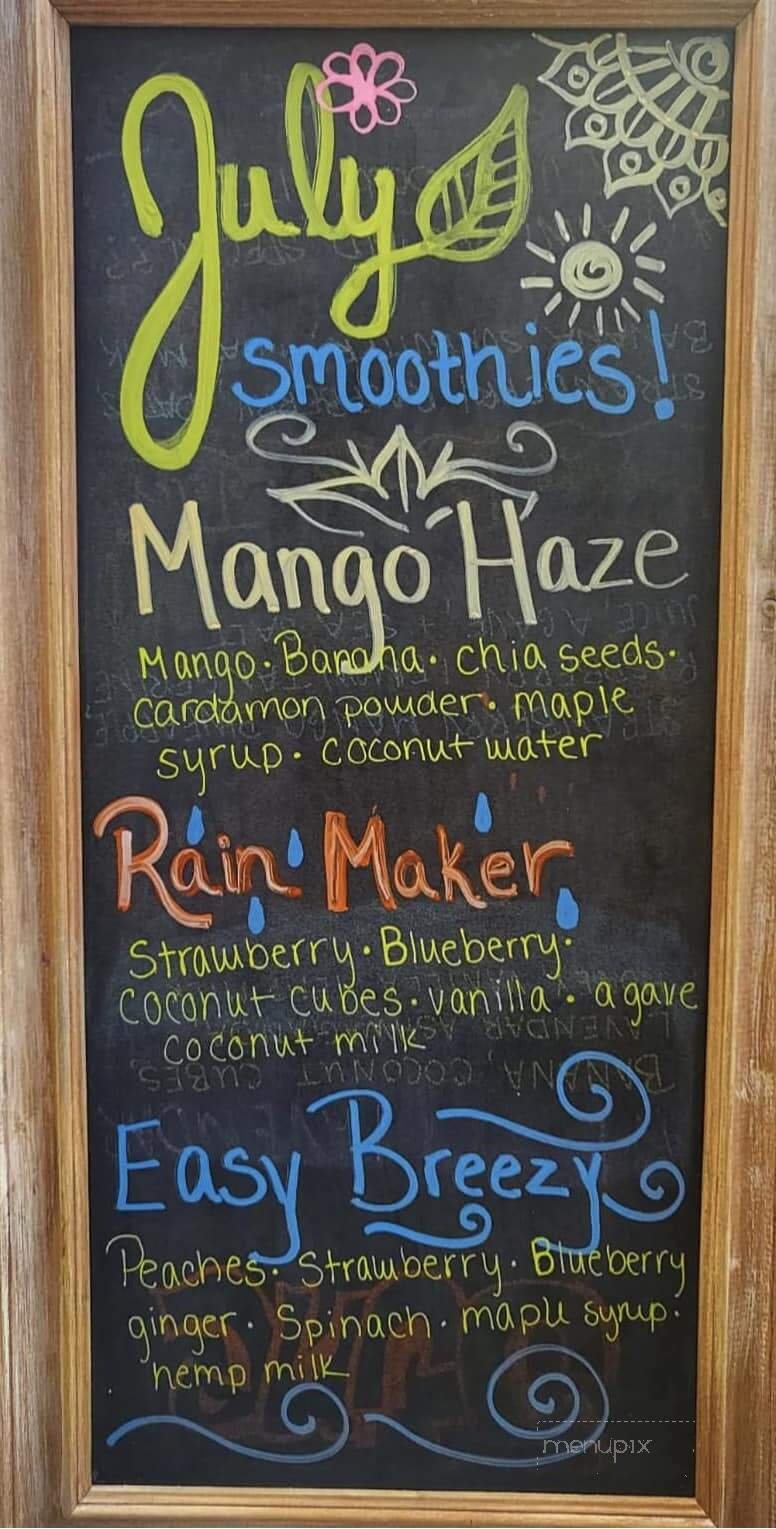 July
smoothies!
Mango Haze
Mango · Banana · chia seeds ·
cardamon powder · maple
syrup · coconut water
Rain Maker
Strawberry · Blueberry ·
coconut cubes · vanilla · agave
coconut milk
Easy Breezy
Peaches · Strawberry · Blueberry
ginger · Spinach · maple syrup ·
hemp milk
menupix